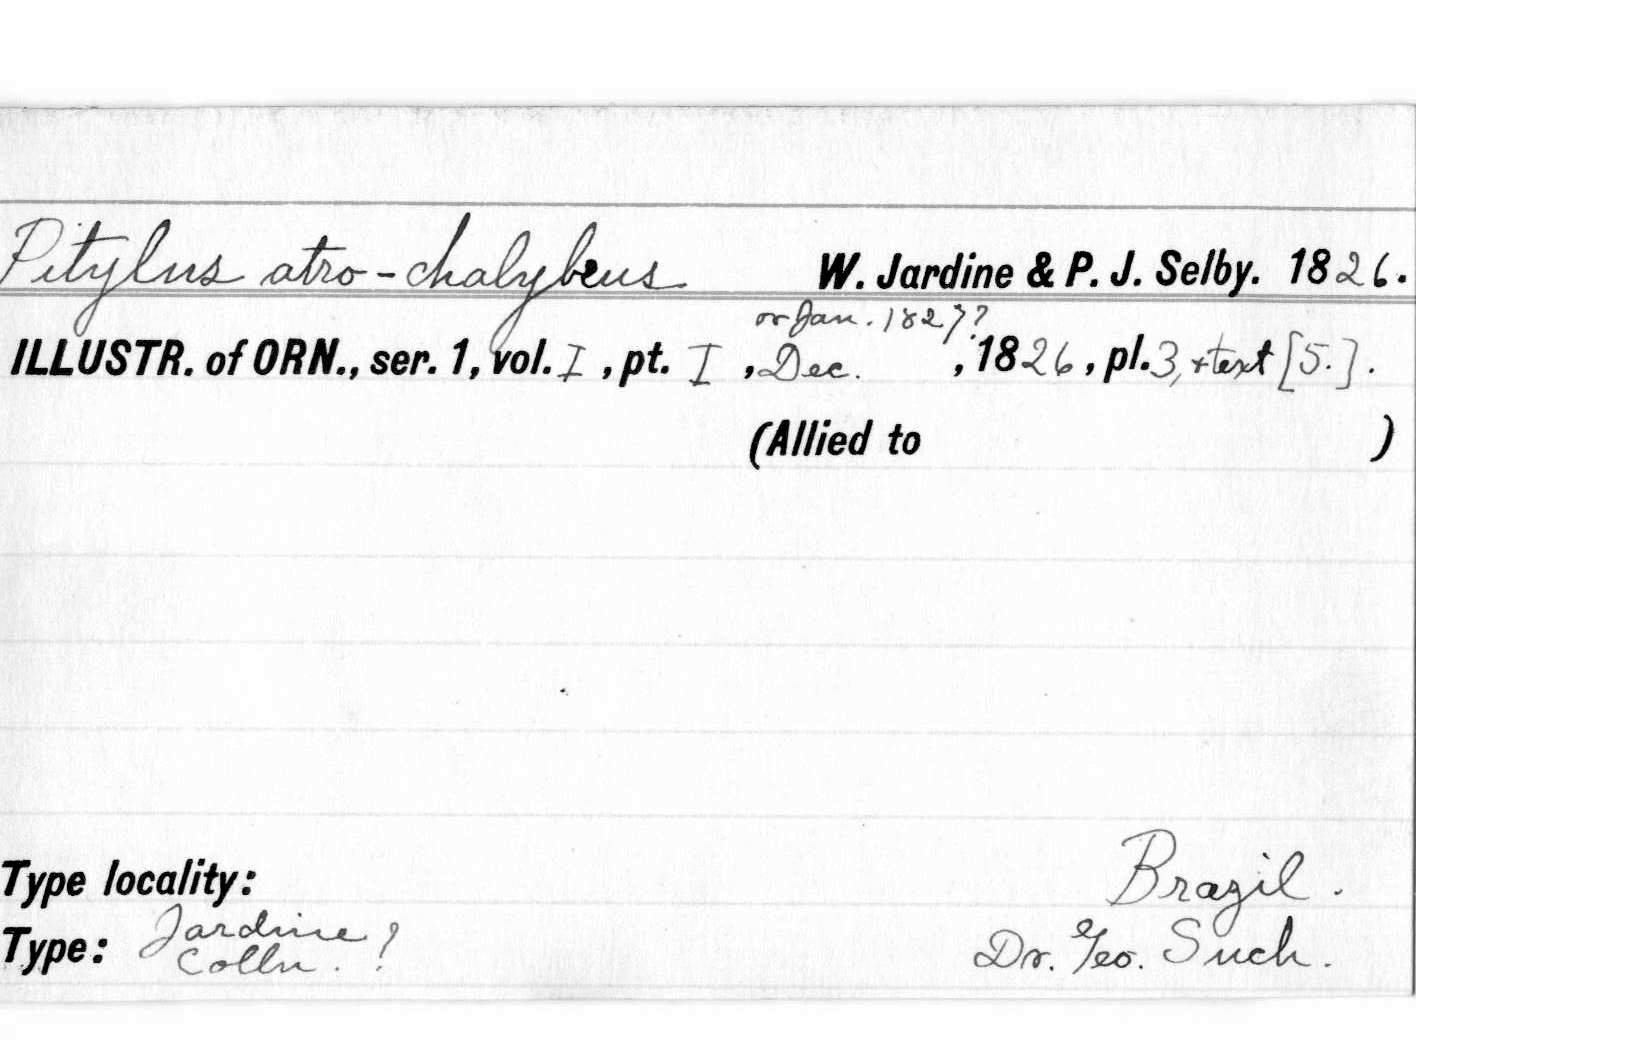 Pitylus atro-chalybeus W. Jardine & P. J. Selby. 1826.
or Jan. 1827?
ILLUSTR. of ORN., ser. 1, vol. I , pt. I , Dec. , 1826, pl. 3, + text [5.].
(Allied to )
Type locality: Brazil.
Type: Jardine Colln. ? Dr. Geo. Such.